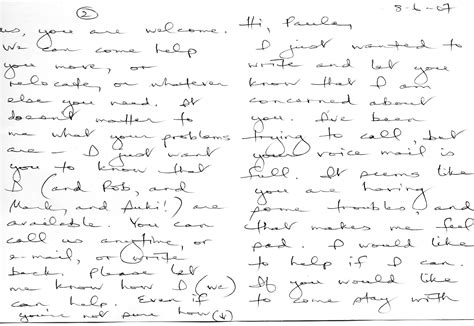 8-6-07
Hi, Paula,
I just wanted to
write and let you
know that I am
concerned about
you. I've been
trying to call, but
your voice mail is
full. It seems like
you are having
some troubles, and
that makes me feel
sad. I would like
to help if I can.
If you would like
to come stay with
②
us, you are welcome.
We can come help
you move, or
relocate, or whatever
else you need. It
doesn't matter to
me what your problems
are – I just want
you to know that
I (and Rob, and
Mark, and Auki!) are
available. You can
call us anytime, or
e-mail, or write
back. Please let
me know how I (we)
can help. Even if
you're not sure how (↓)